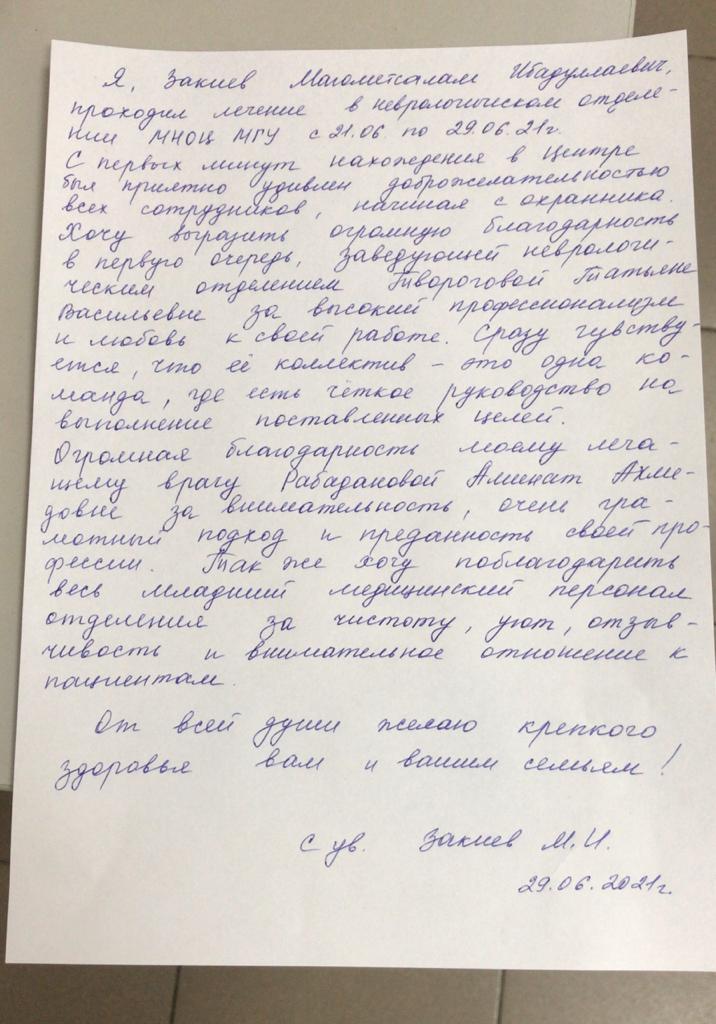 Я, Закиев Магометсалам Ибадуллаевич,
проходил лечение в неврологическом отделе-
нии МНОЦ МГУ с 21.06 по 29.06.21г.
С первых минут нахождения в Центре
был приятно удивлен доброжелательностью
всех сотрудников, начиная с охранника.
Хочу выразить огромную благодарность
в первую очередь, заведующей неврологи-
ческим отделением Твороговой Татьяне
Васильевне за высокий профессионализм
и любовь к своей работе. Сразу чувству-
ется, что её коллектив - это одна ко-
манда, где есть чёткое руководство на
выполнение поставленных целей.
Огромная благодарность моему леча-
щему врачу Рабадановой Аминат Ахме-
довне за внимательность, очень гра-
мотный подход и преданность своей про-
фессии. Так же хочу поблагодарить
весь младший медицинский персонал
отделения за чистоту, уют, отзыв-
чивость и внимательное отношение к
пациентам.
От всей души желаю крепкого
здоровья вам и вашим семьям!
С ув. Закиев М.И.
29.06.2021г.